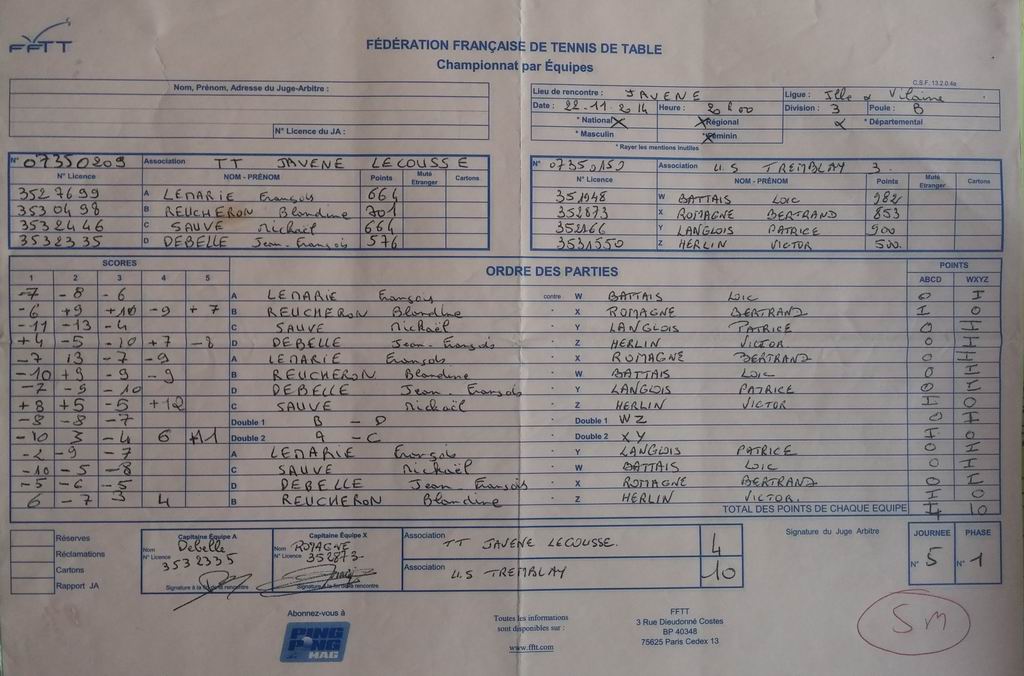 FFTT
FÉDÉRATION FRANÇAISE DE TENNIS DE TABLE
Championnat par Équipes
C.S.F. 13.2.0.4a
Nom, Prénom, Adresse du Juge-Arbitre :
N° Licence du JA :
Lieu de rencontre : JAVENE
Ligue : Ille & Vilaine
Date : 22.11.2014 Heure : 20h00
Division : 3 Poule : B
* National * Régional * Départemental
* Masculin * Féminin
* Rayer les mentions inutiles
N° 07350209 Association TT JAVENE LECOUSSE
N° Licence NOM - PRÉNOM Points Muté Etranger Cartons
3527699 A LEMARIE François 664
353 04 98 B REUCHERON Blandine 701
3532446 C SAUVE Mickaël 664
3532335 D DEBELLE Jean-François 576
N° 07350159 Association U.S TREMBLAY 3
N° Licence NOM - PRÉNOM Points Muté Etranger Cartons
351948 W BATTAIS LOIC 982
352873 X ROMAGNE BERTRAND 853
352166 Y LANGLOIS PATRICE 900
3531550 Z HERLIN VICTOR 500
SCORES ORDRE DES PARTIES POINTS
1 2 3 4 5 ABCD WXYZ
-7 -8 -6 A LEMARIE François contre W BATTAIS LOIC 0 I
-6 +9 +10 -9 +7 B REUCHERON Blandine X ROMAGNE BERTRAND I 0
-11 -13 -4 C SAUVE Mickaël Y LANGLOIS PATRICE 0 I
+4 -5 -10 +7 -8 D DEBELLE Jean-François Z HERLIN VICTOR 0 I
-7 13 -7 -9 A LEMARIE François X ROMAGNE BERTRAND 0 I
-10 +9 -9 -9 B REUCHERON Blandine W BATTAIS LOIC 0 I
-7 -5 -10 D DEBELLE Jean-François Y LANGLOIS PATRICE 0 I
+8 +5 -5 +12 C SAUVE Mickaël Z HERLIN VICTOR I 0
-8 -8 -7 Double 1 B - D Double 1 WZ 0 I
-10 3 -4 6 +11 Double 2 A - C Double 2 XY I 0
-2 -9 -7 A LEMARIE François Y LANGLOIS PATRICE 0 I
-10 -5 -8 C SAUVE Mickaël W BATTAIS LOIC 0 I
-5 -6 -5 D DEBELLE Jean-François X ROMAGNE BERTRAND 0 I
6 -7 3 4 B REUCHERON Blandine Z HERLIN VICTOR. I 0
TOTAL DES POINTS DE CHAQUE EQUIPE 4 10
Réserves
Réclamations
Cartons
Rapport JA
Capitaine Équipe A
Nom Debelle
N° Licence 3532335
Signature à la fin de la rencontre
Capitaine Équipe X
Nom ROMAGNE
N° Licence 352873
Signature à la fin de la rencontre
Association TT JAVENE LECOUSSE. 4
Association U.S TREMBLAY 10
Signature du Juge Arbitre
JOURNEE PHASE
N° 5 N° 1
Abonnez-vous à
PING PONG MAG
Toutes les informations
sont disponibles sur :
www.fftt.com
FFTT
3 Rue Dieudonné Costes
BP 40348
75625 Paris Cedex 13
SM